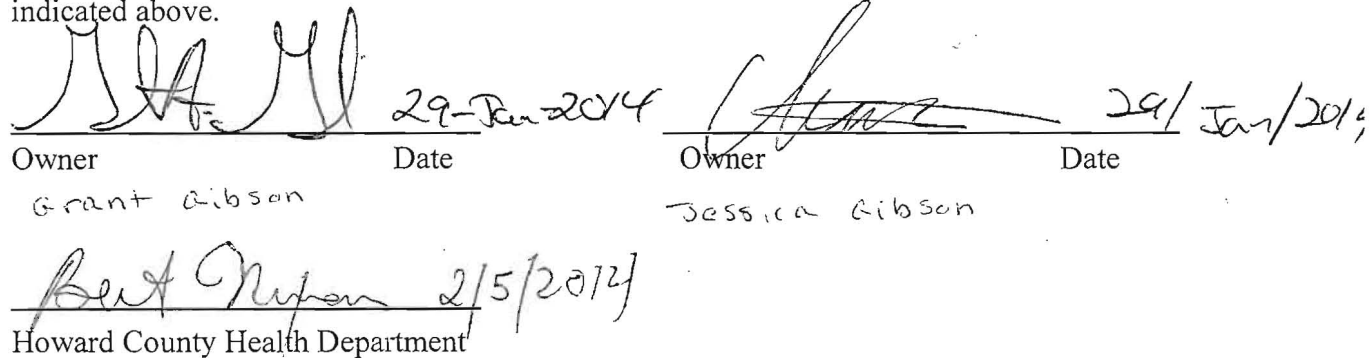 indicated above.
29-Jan-2014 29/Jan/2014
Owner Date Owner Date
Grant Gibson Jessica Gibson
Bert 2/5/2014
Howard County Health Department